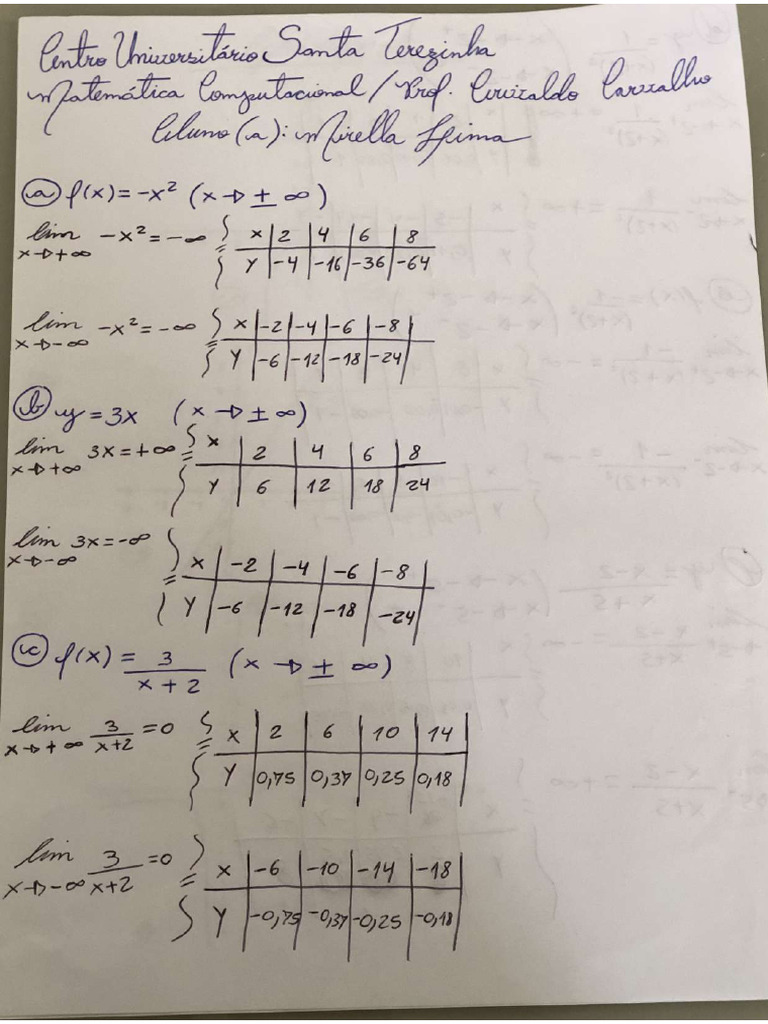 Centro Universitário Santa Terezinha
Matemática Computacional / Prof. Erivaldo Carvalho
Aluno(a): Mirella Lima
a) f(x) = -x² (x → ± ∞)
lim x→+∞ -x² = -∞ = { x | 2 | 4 | 6 | 8
y | -4 | -16 | -36 | -64
lim x→-∞ -x² = -∞ = { x | -2 | -4 | -6 | -8
y | -6 | -12 | -18 | -24
b) y = 3x (x → ± ∞)
lim x→+∞ 3x = +∞ = { x | 2 | 4 | 6 | 8
y | 6 | 12 | 18 | 24
lim x→-∞ 3x = -∞ = { x | -2 | -4 | -6 | -8
y | -6 | -12 | -18 | -24
c) f(x) = 3/(x + 2) (x → ± ∞)
lim x→+∞ 3/(x+2) = 0 = { x | 2 | 6 | 10 | 14
y | 0,75 | 0,37 | 0,25 | 0,18
lim x→-∞ 3/(x+2) = 0 = { x | -6 | -10 | -14 | -18
y | -0,75 | -0,37 | -0,25 | -0,18